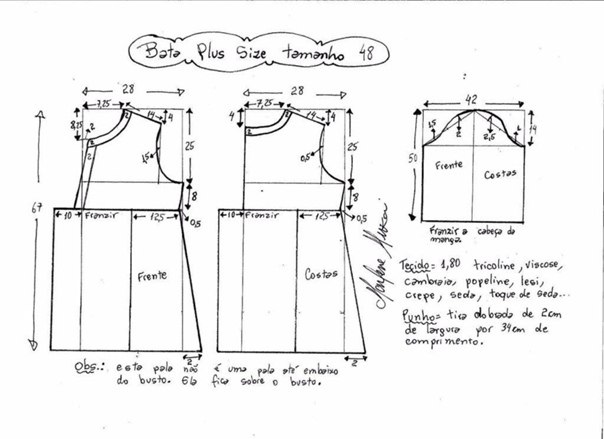 Bata Plus Size tamanho 48
28
7,25
2
14
4
8,25
2
2
2
1,5
25
8
67
10
Franzir
12,5
0,5
Frente
2
28
7,25
4
2
14
4
0,5
25
8
10
Franzir
12,5
0,5
Costas
2
42
1,5
2
2,5
2
14
50
Frente
Costas
Franzir a cabeça da
manga.
Marlene Mukai
Tecido = 1,80 tricoline, viscose,
cambraia, popeline, lesi,
crepe, seda, toque de seda...
Punho = tira dobrada de 2cm
de largura por 34cm de
comprimento.
Obs.: esta pala não é uma pala até embaixo
do busto. Ela fica sobre o busto.